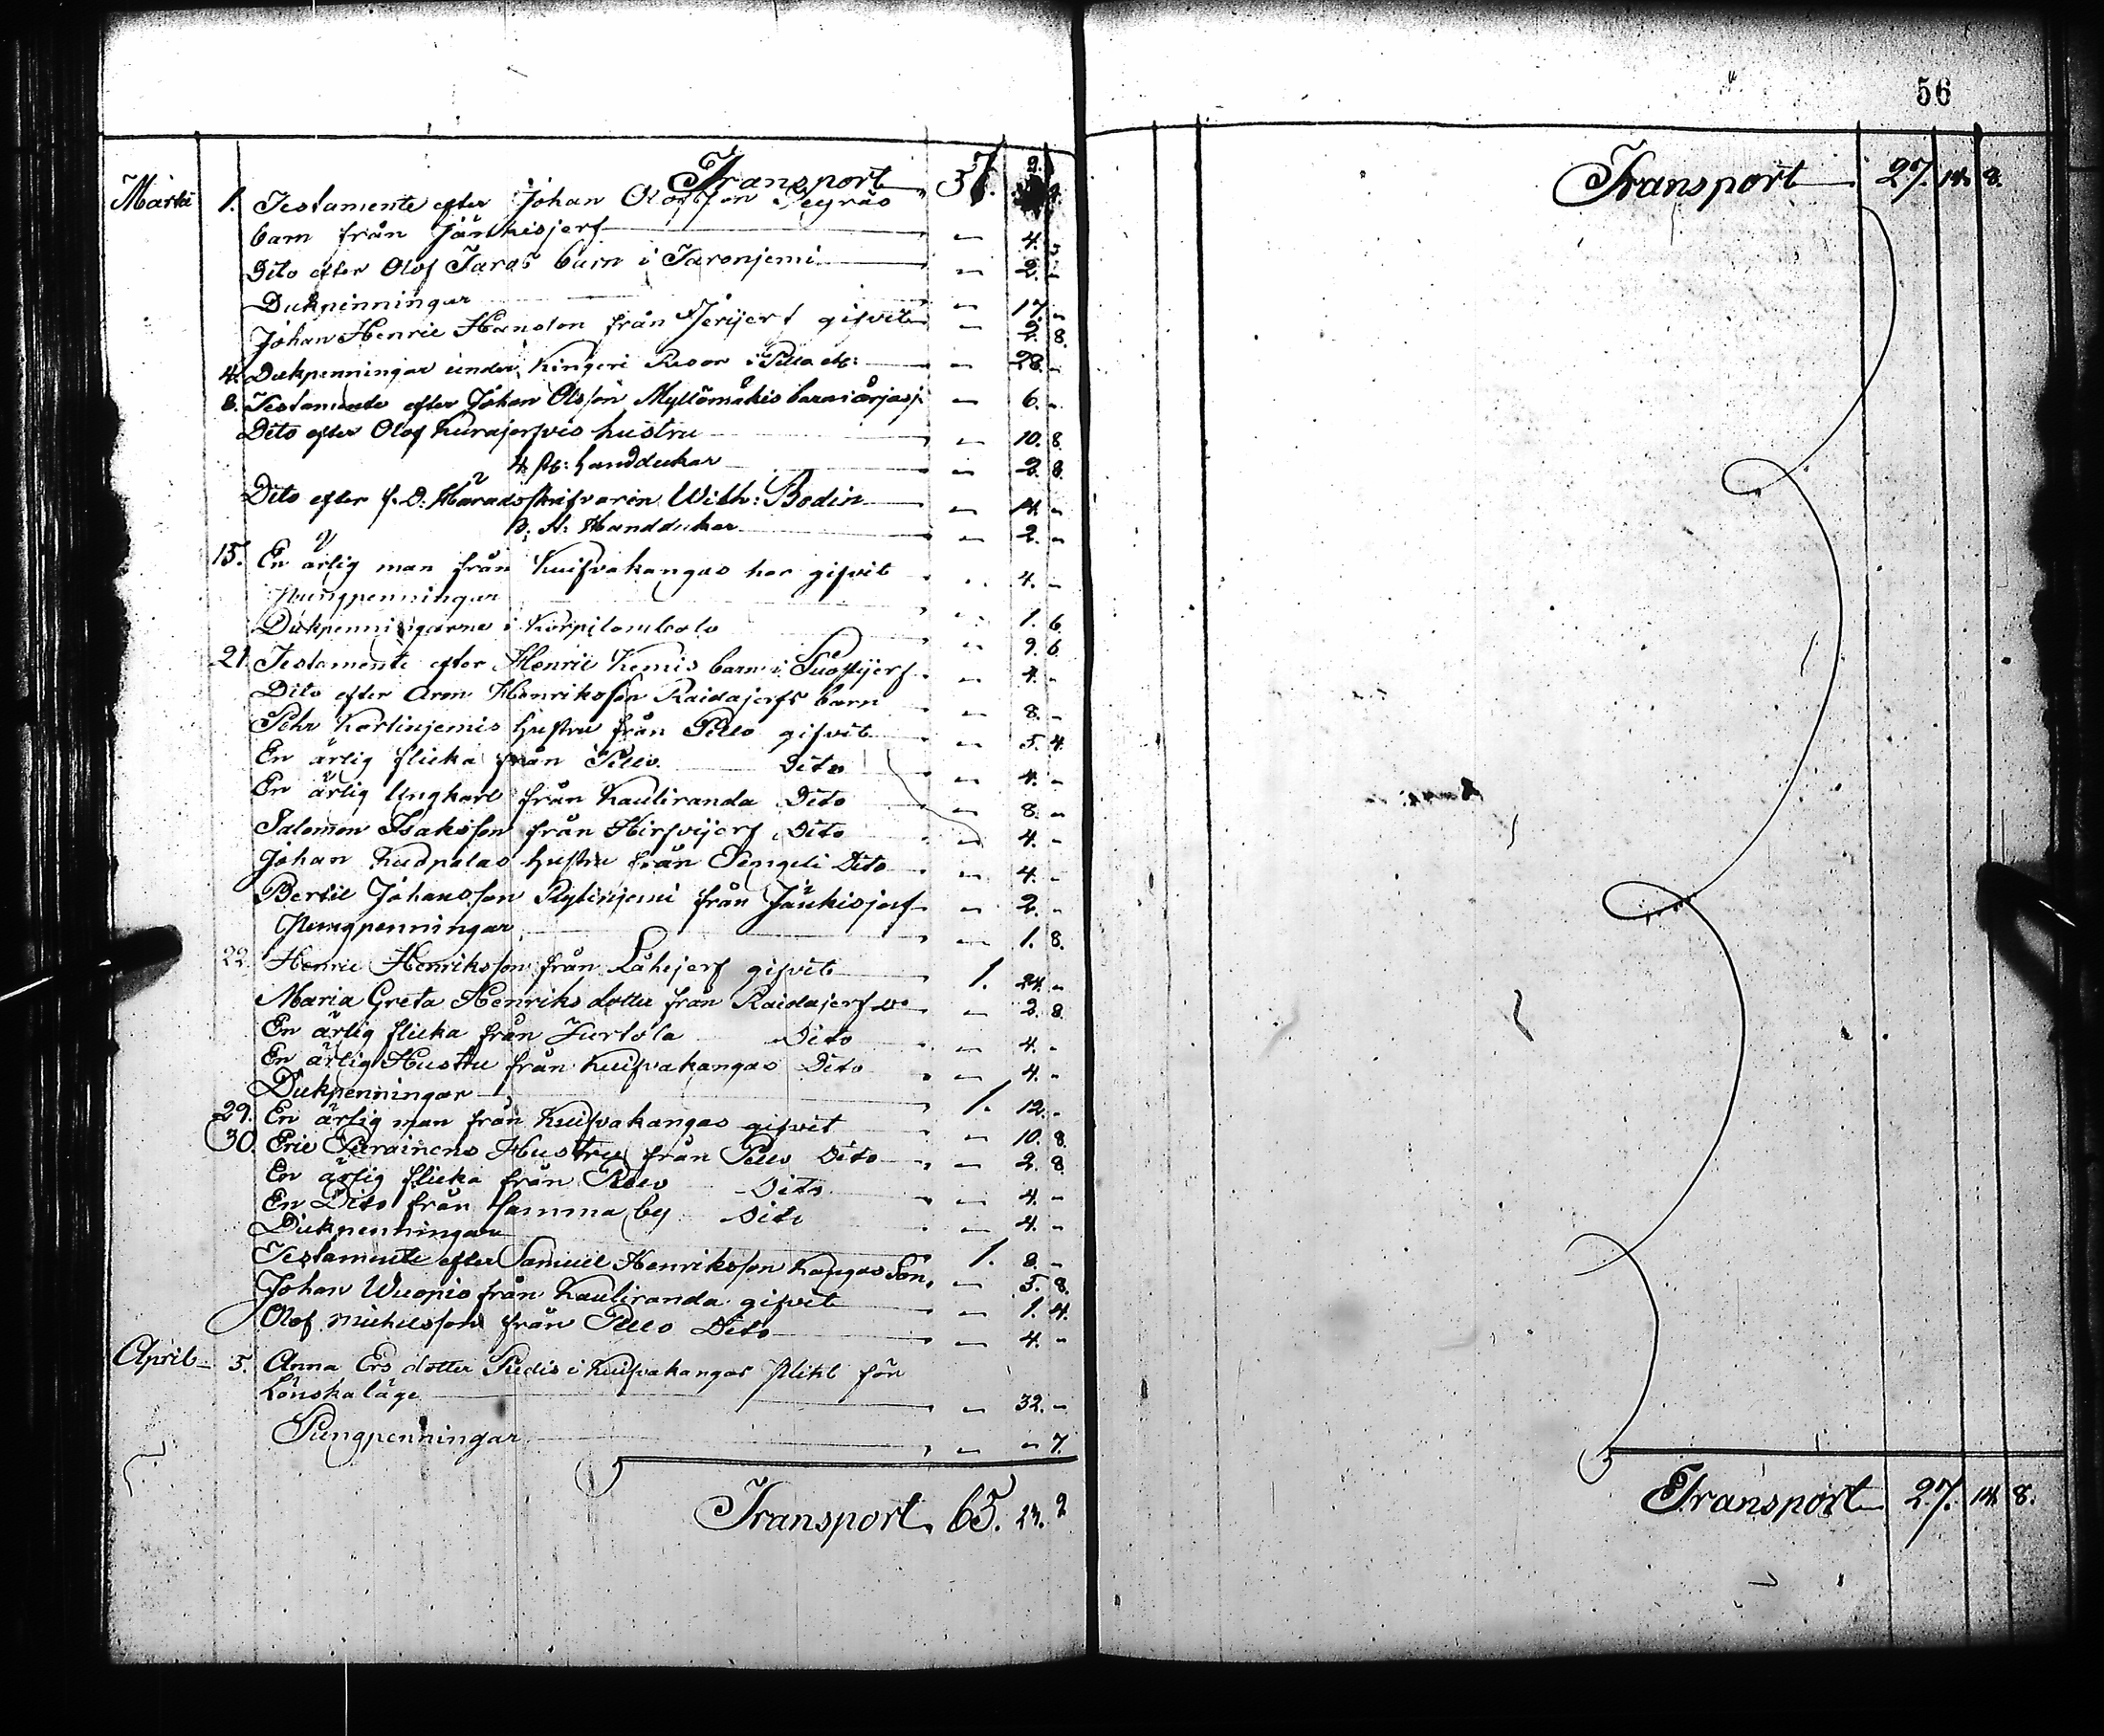 Transport 37. 2.
Martii 1. Testamente efter Johan Olofsson
barn från Jänkisjerf — " 4.
Dito efter Olof Taros barn i Taronjemi — " 2. "
Dukpenningar — " 17. "
Johan Henric Hansson från gifvit — " 2. 8.
4. Dukpenningar under Kingeri Resor i Pello — " 28. "
8. Testamente efter Johan Olsson Myllömäkis barn i — " 6. "
Dito efter Olof Kurajerfvis hustru — " 10. 8.
4 st: handdukar — " 2. 8.
Dito efter f.D. Häradsskrifvaren Wilh: Bodin — " 14. "
3. st: Handdukar — " 2. "
15. En ärlig man från Kuifvakangas har gifvit " 4. "
Pungpenningar " 1. 6.
Dukpenningarne i Korpilombolo " 9. 6.
21. Testamente efter Henric Kemis barn i " 4. "
Dito efter Aron Henriksson Raidajerfs barn " 8. "
Pehr Kortinjemis hustru från Pello gifvit " 5. 4.
En ärlig flicka från Pello Dito " 4. "
En ärlig Ungkarl från Kauliranda Dito " 8. "
Salomon Isaksson från Hirfvijerf Dito " 4. "
Johan Kuopalas hustru från Pengeli Dito " 4. "
Bertil Johansson Rytinjemi från Jänkisjerf " 2. "
Pungpenningar — " 1. 8.
22. Henric Henriksson från gifvit — 1. 24. "
Maria Greta Henriksdotter från Raidajerf Do — " 2. 8.
En ärlig flicka från Turtola Dito " 4. "
En ärlig Hustru från Kuifvakangas Dito " 4. "
Dukpenningar — 1. 12. "
29. En ärlig man från Kuifvakangas gifvit " 10. 8.
30. Eric Hustru från Pello Dito " 2. 8.
En ärlig flicka från Pello Dito " 4. "
En Dito från samma by Dito " 4. "
Dukpenningar — 1. 8. "
Testamente efter Samuel Henriksson Kangas Son. " 5. 8.
Johan Wuopio från Kauliranda gifvit — " 1. 4.
Olof Michelsson från Pello Dito — " 4. "
April 5. Anna Ersdotter i Kuifvakangas Plikt för
Lönskaläge — " 32. "
Pungpenningar — " " 7.
Transport. 65. 23. 2
56
Transport 27. 14. 8.
Transport 27. 14. 8.